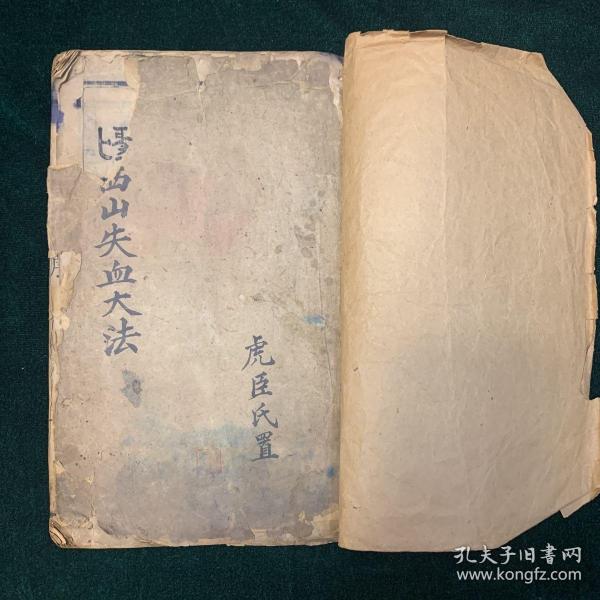 山失血大法
虎臣氏置
孔夫子旧書网
www.kongfz.com